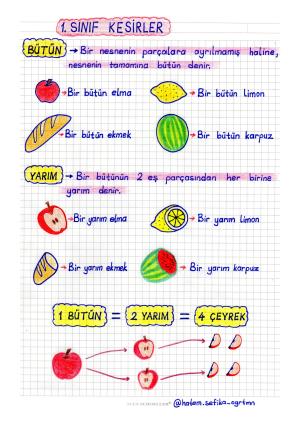 1. SINIF KESİRLER
BÜTÜN → Bir nesnenin parçalara ayrılmamış haline,
nesnenin tamamına bütün denir.
→ Bir bütün elma
→ Bir bütün limon
→ Bir bütün ekmek
→ Bir bütün karpuz
YARIM → Bir bütünün 2 eş parçasından her birine
yarım denir.
→ Bir yarım elma
→ Bir yarım limon
→ Bir yarım ekmek
→ Bir yarım karpuz
1 BÜTÜN = 2 YARIM = 4 ÇEYREK
@kalem.sefika_ogrtmn